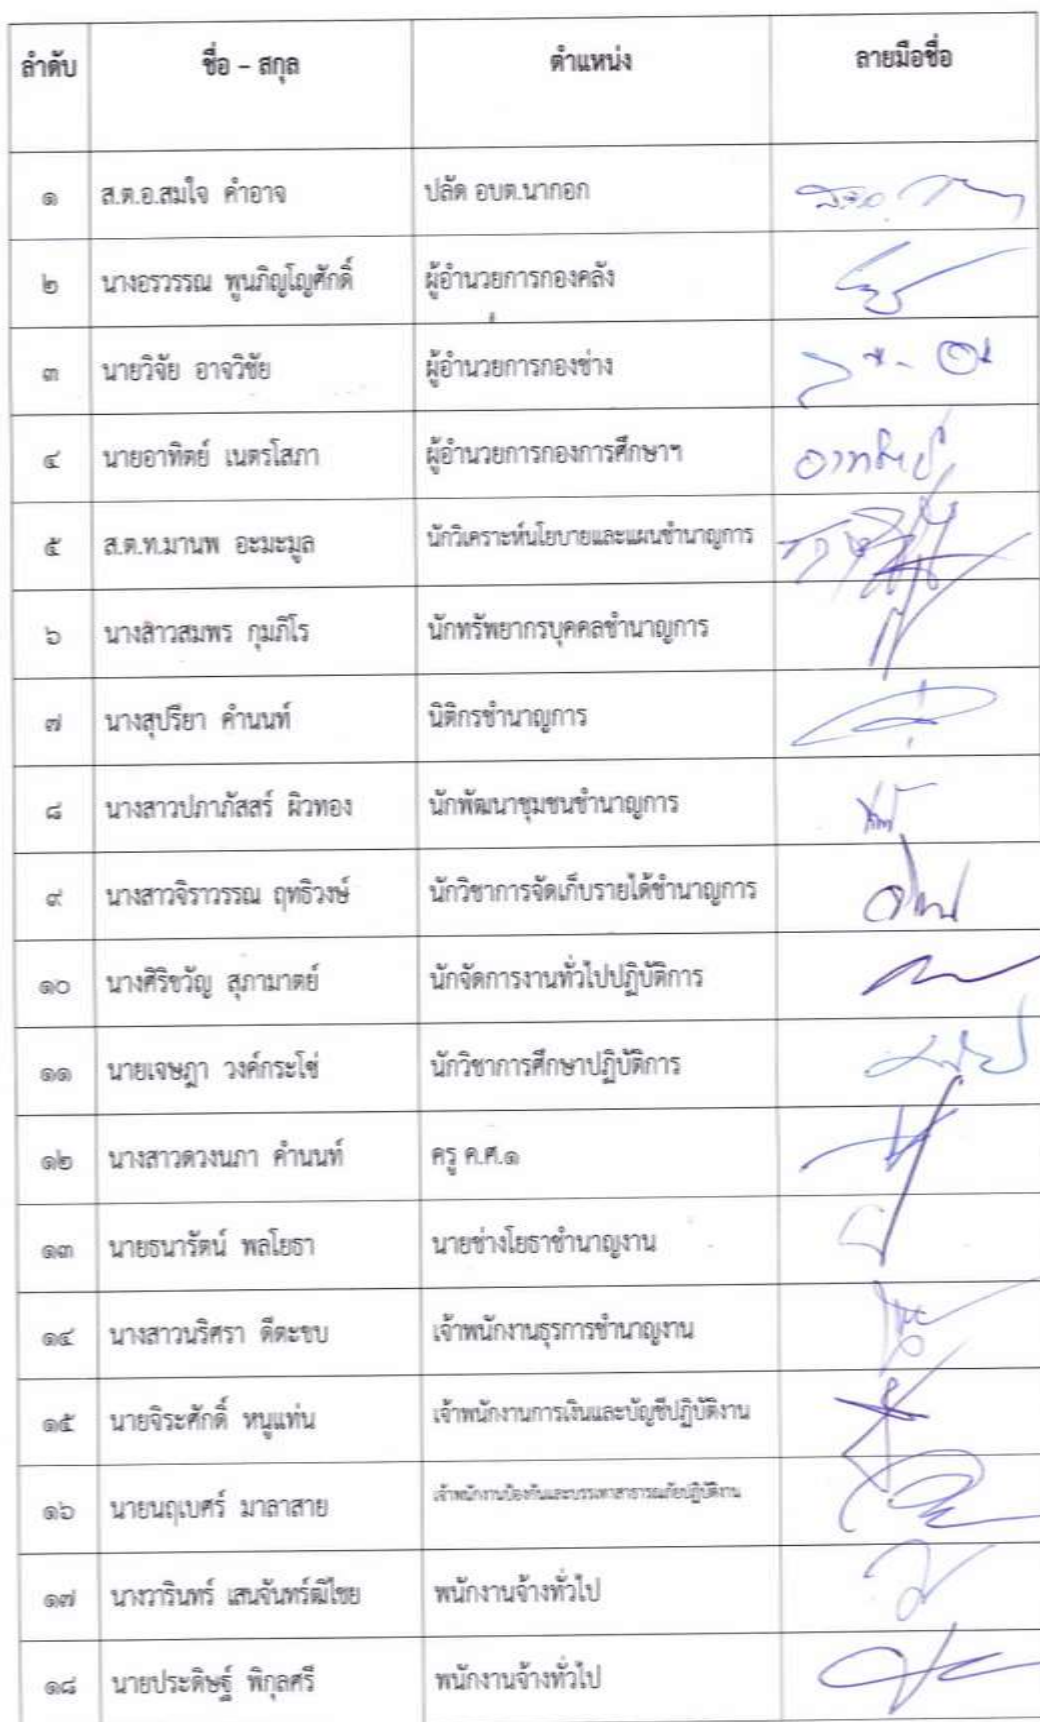 ลำดับ ชื่อ – สกุล ตำแหน่ง ลายมือชื่อ
๑ ส.ต.อ.สมใจ คำอาจ ปลัด อบต.นากอก
๒ นางอรวรรณ พูนภิญโญศักดิ์ ผู้อำนวยการกองคลัง
๓ นายวิจัย อาจวิชัย ผู้อำนวยการกองช่าง
๔ นายอาทิตย์ เนตรโสภา ผู้อำนวยการกองการศึกษาฯ
๕ ส.ต.ท.มานพ อะมะมูล นักวิเคราะห์นโยบายและแผนชำนาญการ
๖ นางสาวสมพร กุมภิโร นักทรัพยากรบุคคลชำนาญการ
๗ นางสุปรียา คำนนท์ นิติกรชำนาญการ
๘ นางสาวปภาภัสสร์ ผิวทอง นักพัฒนาชุมชนชำนาญการ
๙ นางสาวจิราวรรณ ฤทธิวงษ์ นักวิชาการจัดเก็บรายได้ชำนาญการ
๑๐ นางศิริขวัญ สุภามาตย์ นักจัดการงานทั่วไปปฏิบัติการ
๑๑ นายเจษฎา วงค์กระโซ่ นักวิชาการศึกษาปฏิบัติการ
๑๒ นางสาวดวงนภา คำนนท์ ครู ค.ศ.๑
๑๓ นายธนารัตน์ พลโยธา นายช่างโยธาชำนาญงาน
๑๔ นางสาวนริศรา ดีตะขบ เจ้าพนักงานธุรการชำนาญงาน
๑๕ นายจิระศักดิ์ หนูแท่น เจ้าพนักงานการเงินและบัญชีปฏิบัติงาน
๑๖ นายนฤเบศร์ มาลาสาย เจ้าพนักงานป้องกันและบรรเทาสาธารณภัยปฏิบัติงาน
๑๗ นางวารินทร์ เสนจันทร์ฒิไชย พนักงานจ้างทั่วไป
๑๘ นายประดิษฐ์ พิกุลศรี พนักงานจ้างทั่วไป